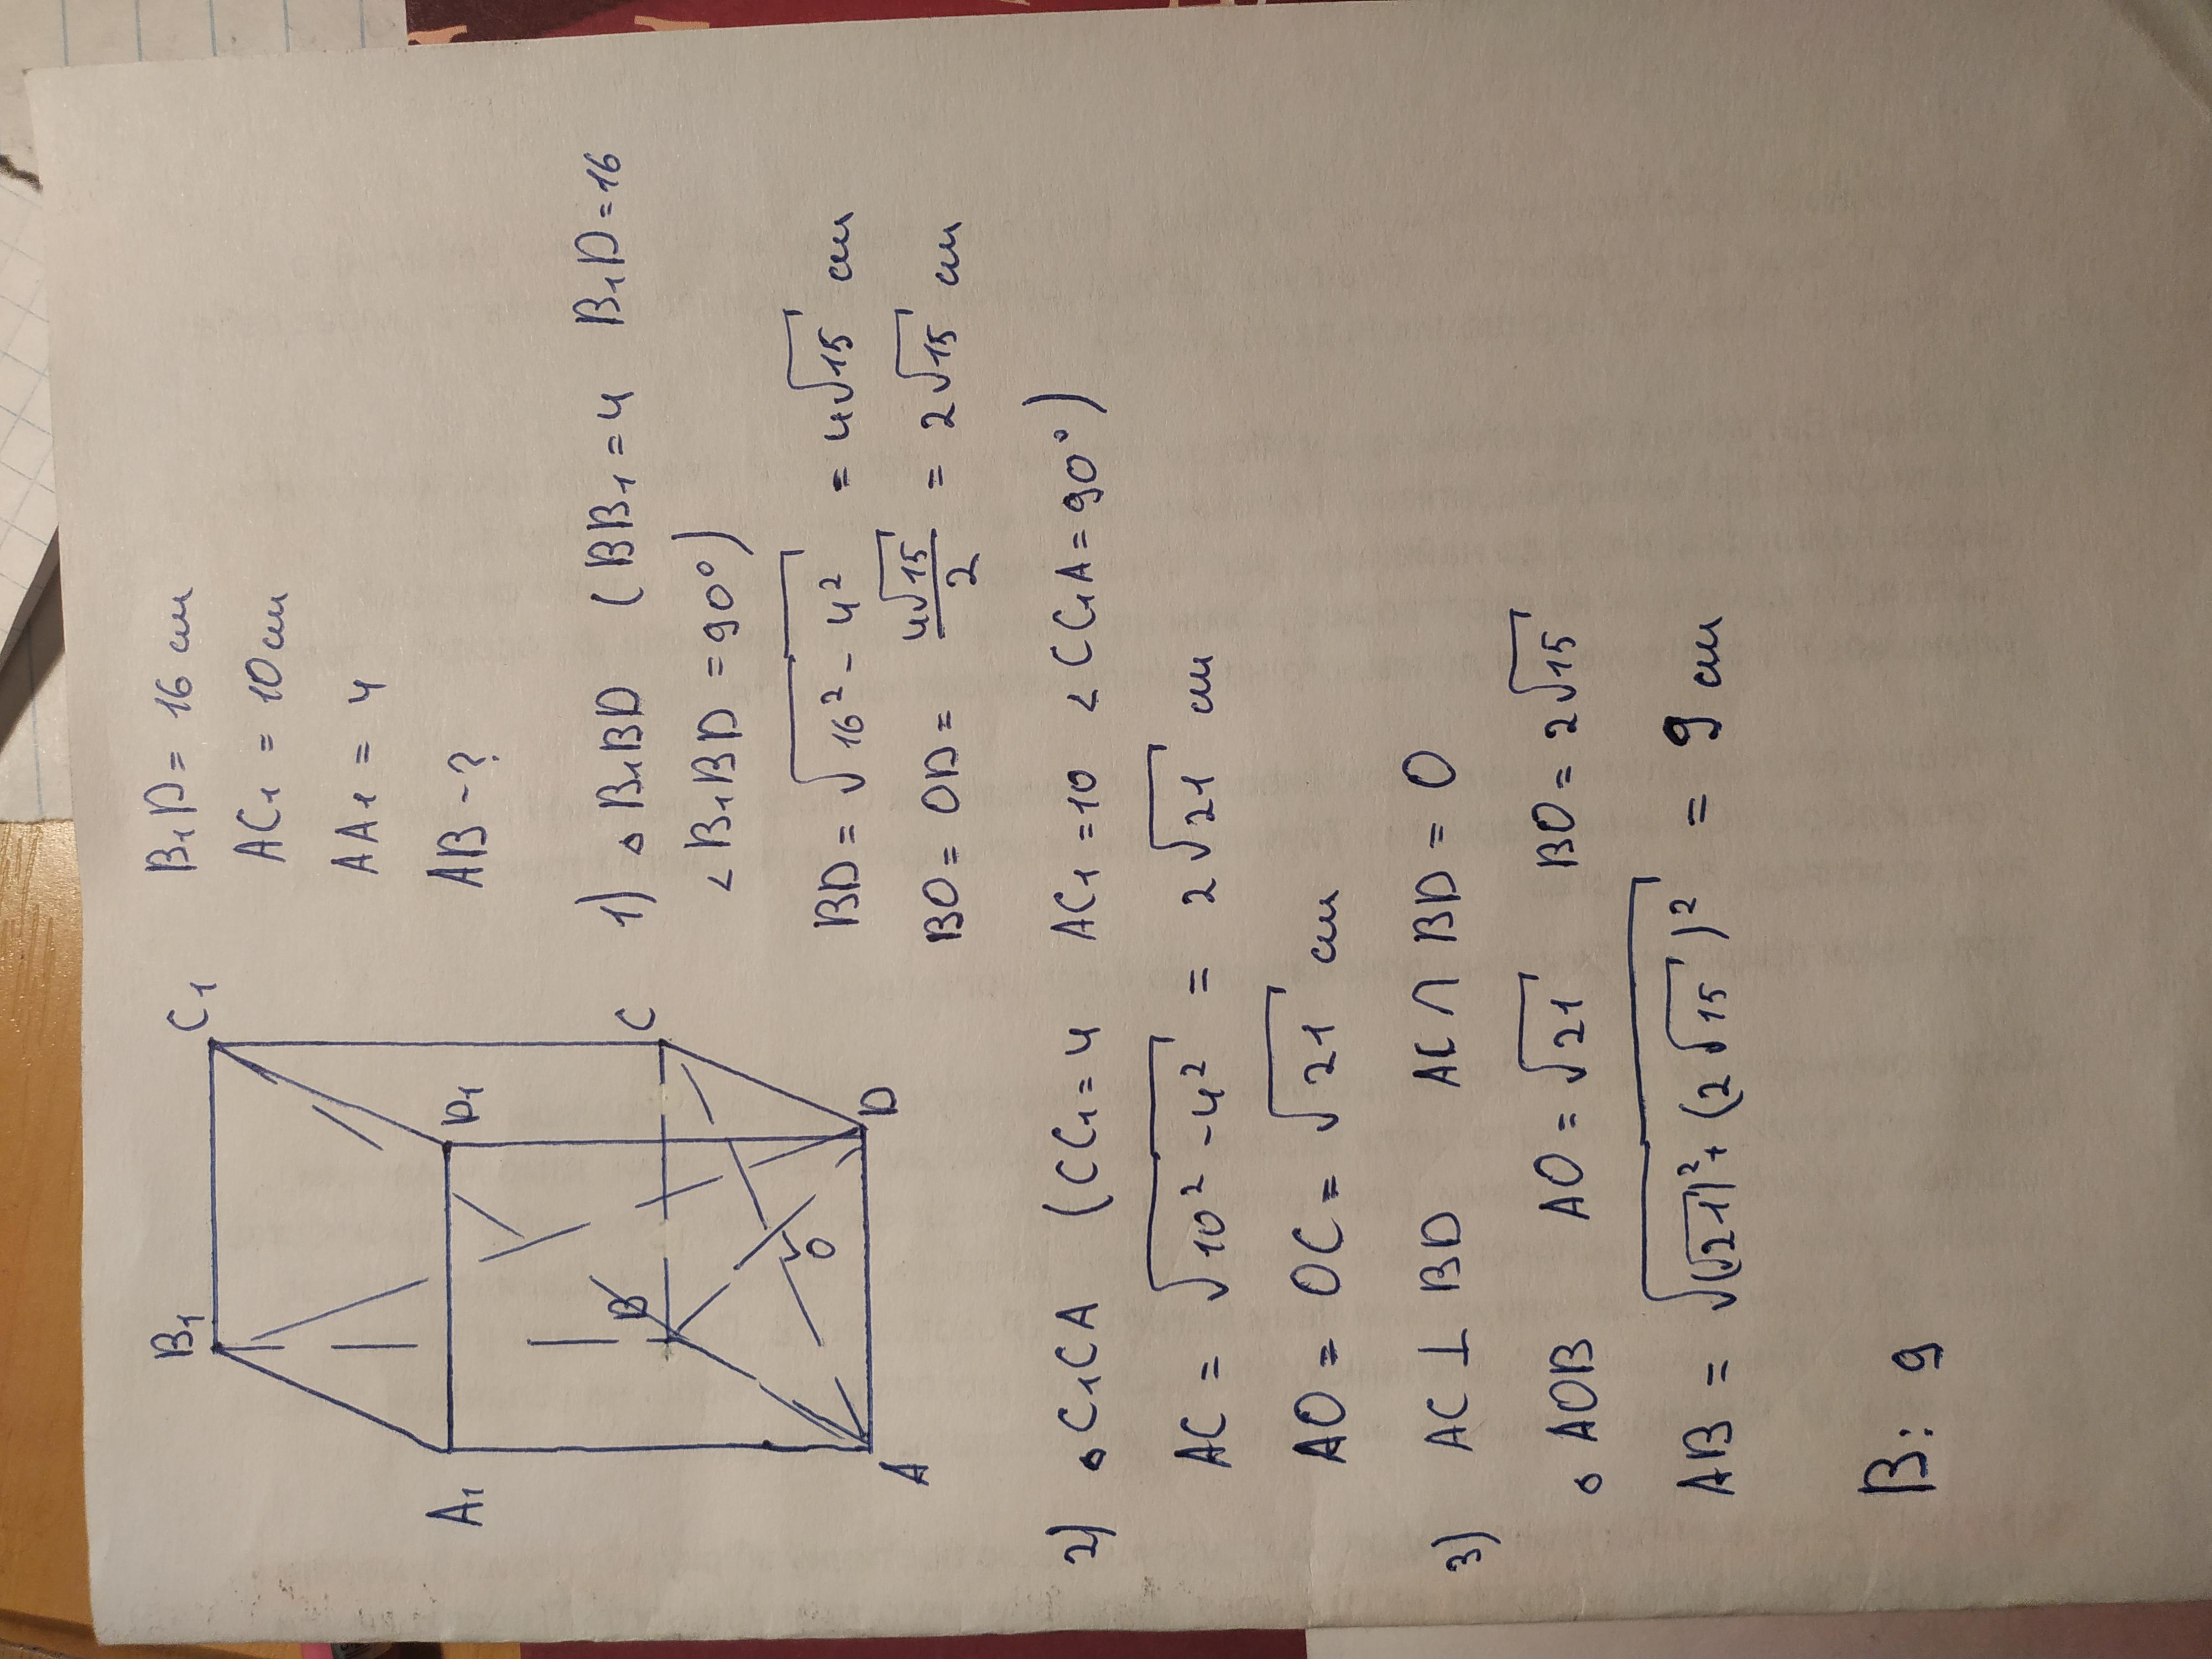 B₁
C₁
A₁
D₁
B
C
A
D
O
B₁D = 16 см
AC₁ = 10 см
AA₁ = 4
AB - ?
1) △ B₁BD (BB₁ = 4 B₁D = 16
∠B₁BD = 90°)
BD = √(16² - 4²) = 4√15 см
BO = OD = 4√15/2 = 2√15 см
2) △ C₁CA (CC₁ = 4 AC₁ = 10 ∠CC₁A = 90°)
AC = √(10² - 4²) = 2√21 см
AO = OC = √21 см
3) AC ⊥ BD AC ∩ BD = O
△ AOB AO = √21 BO = 2√15
AB = √((√21)² + (2√15)²) = 9 см
В: 9